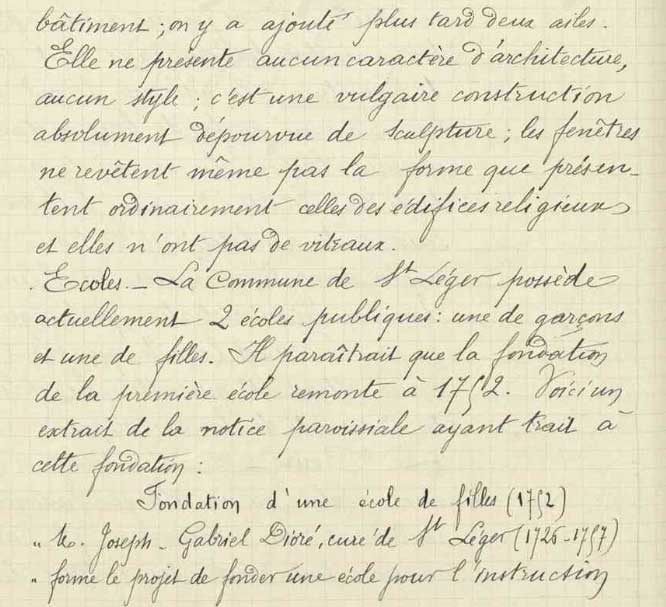 bâtiment ; on y a ajouté plus tard deux ailes.
Elle ne présente aucun caractère d'architecture,
aucun style ; c'est une vulgaire construction
absolument dépourvue de sculpture ; les fenêtres
ne revêtent même pas la forme que présen-
tent ordinairement celles des édifices religieux
et elles n'ont pas de vitraux.
Ecoles. - La Commune de St Léger possède
actuellement 2 écoles publiques : une de garçons
et une de filles. Il paraîtrait que la fondation
de la première école remonte à 1752. Voici un
extrait de la notice paroissiale ayant trait à
cette fondation :
Fondation d'une école de filles (1752)
" M. Joseph - Gabriel Dioré, curé de St Léger (1726-1757)
" forme le projet de fonder une école pour l'instruction